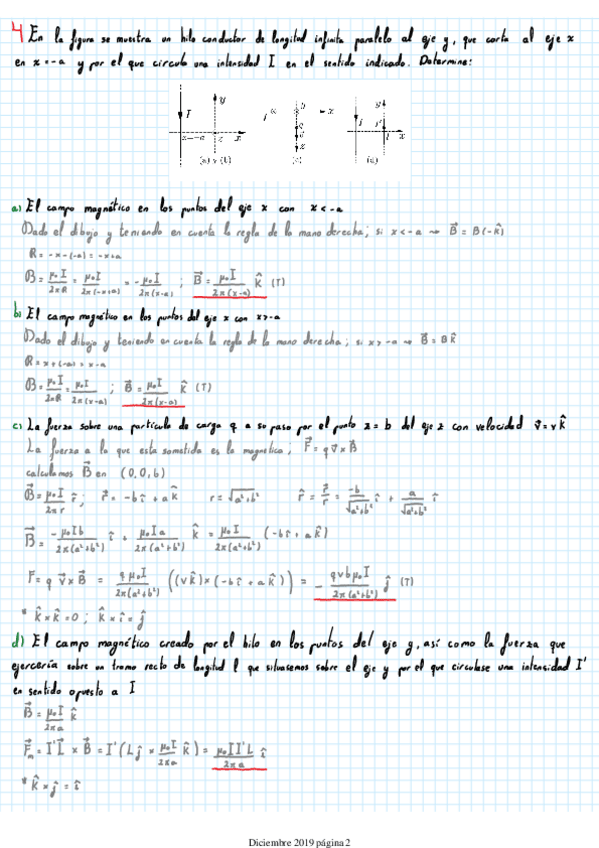 4 En la figura se muestra un hilo conductor de longitud infinita paralelo al eje y, que corta al eje x
en x = -a y por el que circula una intensidad I en el sentido indicado. Determine:
y
I
x=-a
z
x
(a) y (b)
b
x
a
z
(c)
y
I
I'
l
x
(d)
a) El campo magnético en los puntos del eje x con x < -a
Dado el dibujo y teniendo en cuenta la regla de la mano derecha; si x < -a → B⃗ = B(-k̂)
R = -x-(-a) = -x+a
B = μ₀I/2πR = μ₀I/2π(-x+a) = -μ₀I/2π(x-a) ; B⃗ = μ₀I/2π(x-a) k̂ (T)
b) El campo magnético en los puntos del eje x con x>-a
Dado el dibujo y teniendo en cuenta la regla de la mano derecha; si x > -a → B⃗ = B k̂
R = x+(-a) = x-a
B = μ₀I/2πR = μ₀I/2π(x-a) ; B⃗ = μ₀I/2π(x-a) k̂ (T)
c) La fuerza sobre una partícula de carga q a su paso por el punto z = b del eje z con velocidad v⃗ = v k̂
La fuerza a la que esta sometida es la magnetica; F⃗ = q v⃗ x B⃗
calculamos B⃗ en (0,0,b)
B⃗ = μ₀I/2πr r̂ ; r⃗ = -b î + a k̂ r = √a²+b² r̂ = r⃗/r = -b/√a²+b² î + a/√a²+b² k̂
B⃗ = -μ₀Ib/2π(a²+b²) î + μ₀Ia/2π(a²+b²) k̂ = μ₀I/2π(a²+b²) (-b î + a k̂)
F = q v⃗ x B⃗ = qμ₀I/2π(a²+b²) ((v k̂) x (-b î + a k̂)) = - qvbμ₀I/2π(a²+b²) ĵ (T)
* k̂ x k̂ = 0 ; k̂ x î = ĵ
d) El campo magnético creado por el hilo en los puntos del eje y, así como la fuerza que
ejercería sobre un tramo recto de longitud l que situasemos sobre el eje y por el que circulase una intensidad I'
en sentido opuesto a I
B⃗ = μ₀I/2πa k̂
F⃗m = I' L⃗ x B⃗ = I' (L ĵ x μ₀I/2πa k̂) = μ₀II'L/2πa î
* k̂ x ĵ = î
Diciembre 2019 página 2